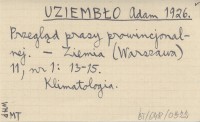 UZIEMBŁO Adam 1926.
Przegląd prasy prowincjonal-
nej. – Ziemia (Warszawa)
11, nr 1: 13-15.
Klimatologia.
MT